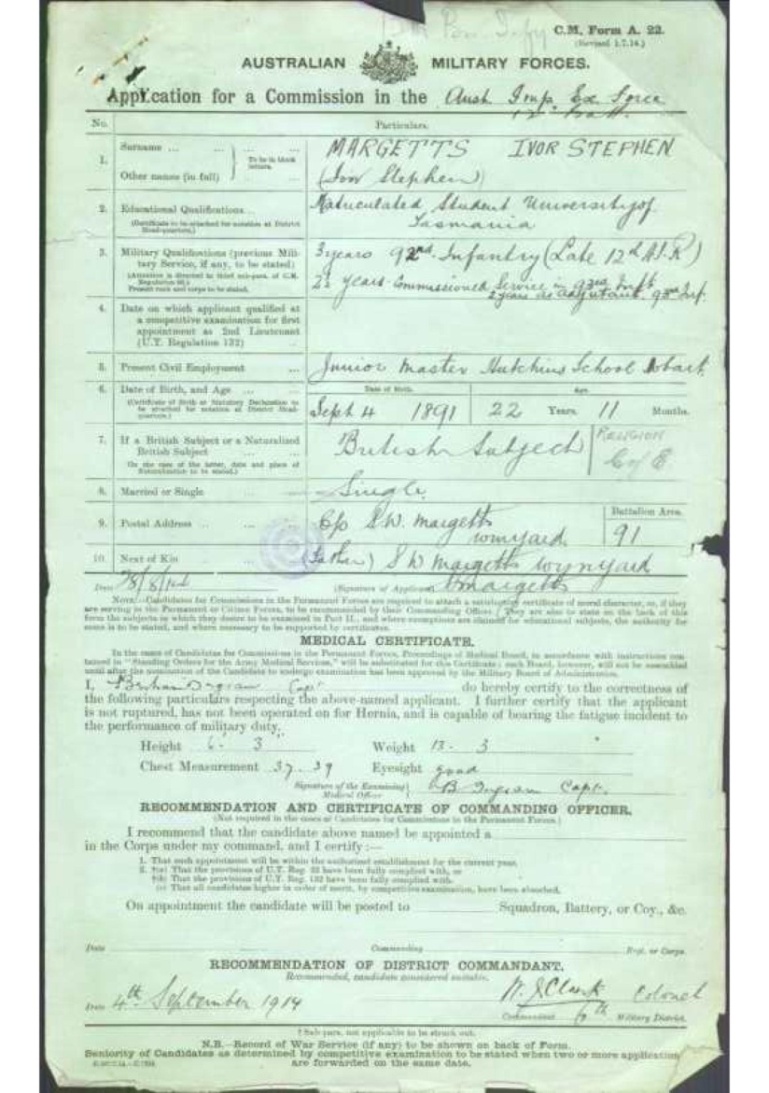 C.M. Form A. 22.
(Revised 1.7.14.)
AUSTRALIAN MILITARY FORCES.
Application for a Commission in the Aust Imp. Ex Force
No. Particulars.
1. Surname ... MARGETTS IVOR STEPHEN
Other names (in full) To be in block letters. (Ivor Stephen)
2. Educational Qualifications... Matriculated Student University of
(Certificate to be attached for notation at District Head-quarters.) Tasmania
3. Military Qualifications (previous Military Service, if any, to be stated) 3 years 92nd Infantry (Late 12th A.I.R)
2½ years Commissioned Service in 93rd Inft
2 years as Adjutant. 93rd Inf.
4. Date on which applicant qualified at
a competitive examination for first
appointment as 2nd Lieutenant
(U.T. Regulation 132)
5. Present Civil Employment Junior Master Hutchins School Hobart
6. Date of Birth, and Age Date of Birth. Age.
(Certificate of Birth or Statutory Declaration to be attached for notation at District Head-quarters.) Sept 4 1891 22 Years. 11 Months.
7. If a British Subject or a Naturalized British Subject British Subject RELIGION
C of E
(In the case of the latter, date and place of Naturalization to be stated.)
8. Married or Single Single
9. Postal Address C/o S.W. Margetts Battalion Area.
Wynyard 91
10. Next of Kin (Father) S W Margetts Wynyard
Date 28/8/14 (Signature of Applicant) Margetts
NOTE.—Candidates for Commissions in the Permanent Forces are required to attach a satisfactory certificate of moral character, or, if they
are serving in the Permanent or Citizen Forces, to be recommended by their Commanding Officer. They are also to state on the back of this
form the subjects in which they desire to be examined in Part II., and where exemptions are claimed for educational subjects, the authority for
same is to be stated, and where necessary to be supported by certificates.
MEDICAL CERTIFICATE.
In the cases of Candidates for Commissions in the Permanent Forces, Proceedings of Medical Board, in accordance with instructions con-
tained in "Standing Orders for the Army Medical Services," will be substituted for this Certificate; such Board, however, will not be assembled
until after the nomination of the Candidate to undergo examination has been approved by the Military Board of Administration.
I, Ingram Capt do hereby certify to the correctness of
the following particulars respecting the above-named applicant. I further certify that the applicant
is not ruptured, has not been operated on for Hernia, and is capable of bearing the fatigue incident to
the performance of military duty.
Height 6. 3 Weight 13. 3
Chest Measurement 37. 39 Eyesight good
Signature of the Examining Medical Officer B Ingram Capt.
RECOMMENDATION AND CERTIFICATE OF COMMANDING OFFICER.
(Not required in the cases of Candidates for Commissions in the Permanent Forces.)
I recommend that the candidate above named be appointed a
in the Corps under my command, and I certify :—
1. That such appointment will be within the authorized establishment for the current year.
2. †(a) That the provisions of U.T. Reg. 32 have been fully complied with, or
†(b) That the provisions of U.T. Reg. 132 have been fully complied with.
(c) That all candidates higher in order of merit, by competitive examination, have been absorbed.
On appointment the candidate will be posted to Squadron, Battery, or Coy., &c.
Date Commanding Regt. or Corps.
RECOMMENDATION OF DISTRICT COMMANDANT.
Recommended, candidate considered suitable.
Date 4th September 1914 W. J Clark Colonel
Commandant 6th Military District.
† Sub-para. not applicable to be struck out.
N.B.—Record of War Service (if any) to be shown on back of Form.
Seniority of Candidates as determined by competitive examination to be stated when two or more applications
are forwarded on the same date.